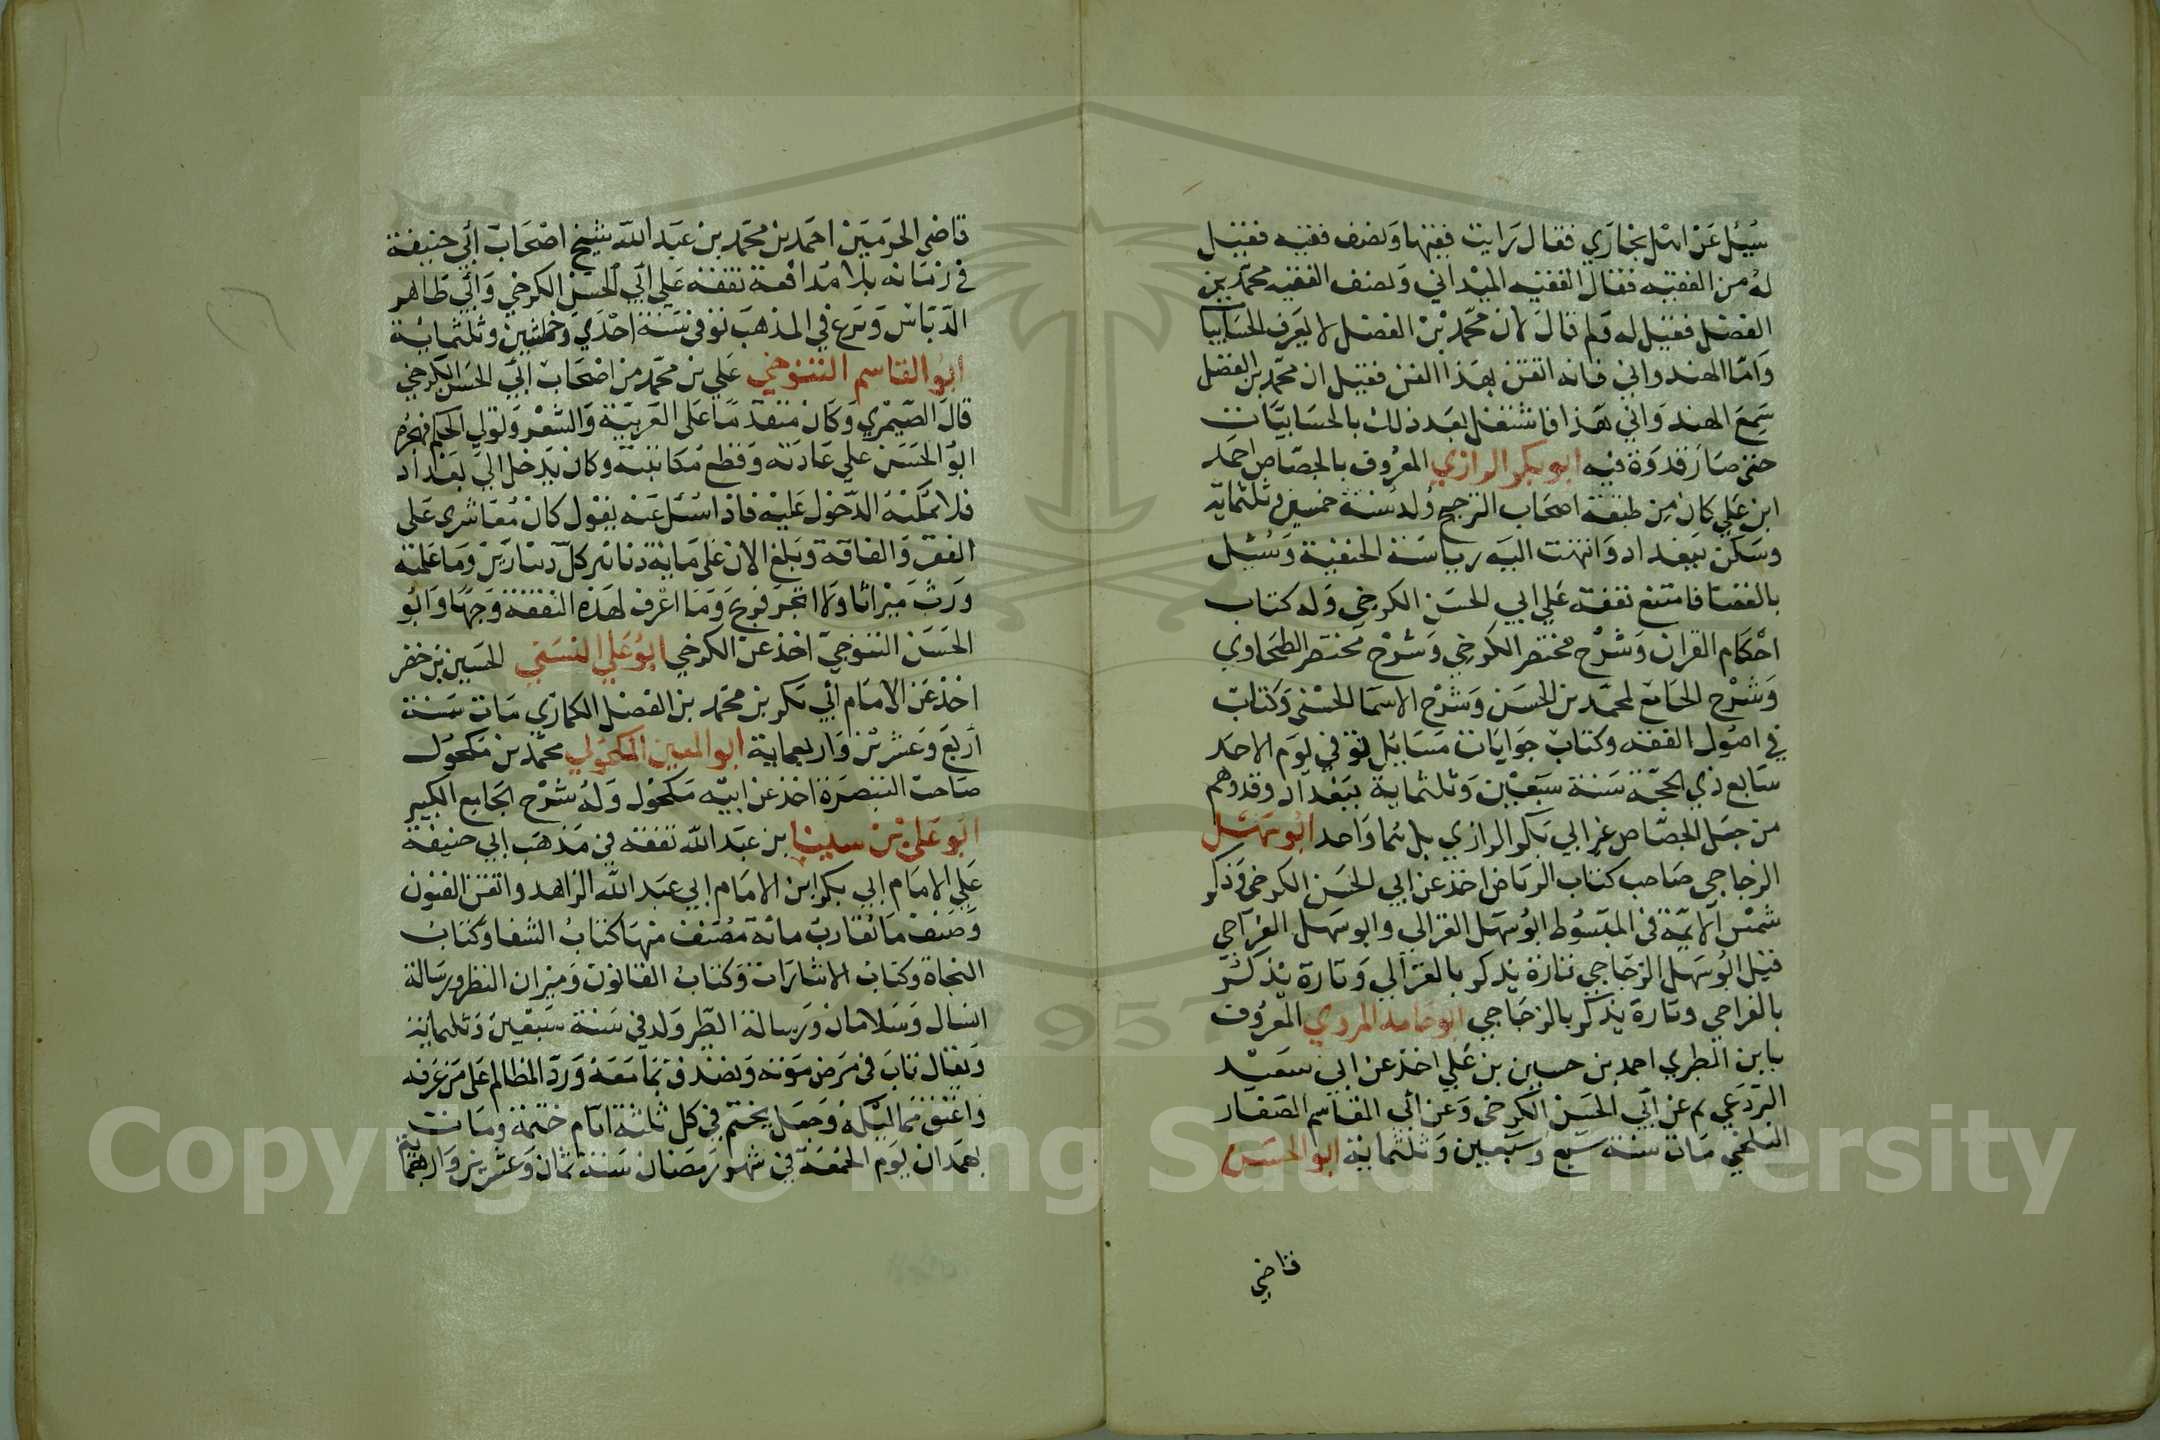 سُيُل عَنْ اهْل بخارَي فقال رَايت فقيها وَنصف فقيه فقيل
لهُ من الفقيه فقال الفقيه الميْداني وَنصف الفقيه محمّد بن
الفضل فقيل له وَلم قال لان محمّد بْن الفضل لا يعَرف الحسَابيات
وَامّا الهندواني فانه اتقن بهَذا الفن فقيل ان محمّد بن الفضل
سَمِعَ الهندوَاني هَذا فاشتغل بعَد ذلك بالحسَابيَّات
حتى صَار قدوَة فيه ابو بكر الرازي المعرُوف بالجصّاص احمَد
ابن عَلي كان مِن طبقة اصحَاب الترجيح وُلد سَنة خمسين وثلثماية
وسَكن ببغداد وَانتهت اليَه رياسَة الحنفيّة وَسُئِل
بالقضَا فامتنع تفقه عَلي ابي الحسَن الكرخي وَله كتاب
احْكام القران وَشرْح مُختصر الكرخي وَشرْح مختصر الطحَاوي
وَشَرْح الجامع لمحمّد بن الحسَن وَشرْح الاسمَا الحسْنى وَكتابٌ
في اصُول الفقه وكتاب جوَابات مسَايل توفي يوَم الاحَد
سَابع ذي الحجّة سَنة سَبْعين وَثلثماية ببَغداد وقد وهم
من جعَل الجصّاص غير ابي بَكر الرازي بل هما وَاحد ابُو سَهْل
الزجاجي صَاحب كتاب الريَاض اخذ عن ابي الحسَن الكرخي وَذكر
شمْس الايمّة في المبسُوط ابُو سَهْل الغزالي وابو سهَل الفرَاجي
قيل ابُو سَهل الزجَاجي تارَة يذكر بالغزالي وَتارة يذكرُ
بالفراجي وتارة يذكر بالزجَاجي ابو حَامد المروزي المعرُوف
بابن الطبري احمد بن حسين بن عَلي اخذ عن ابي سَعيْد
البَردعَي ثم عن ابي الحسَن الكرخي وَعن ابي القاسم الصَفار
البلخي مَات سنة سَبع وَسَبْعين وَثلثماية ابو الحسَين
قاضي
قاضي الحرمَيْن احمَد بن محمّد بن عَبد الله شيخ اصْحَاب أبي حنيفة
في زمَانه بلا مدَافعة تفقه عَلي ابي الحسَن الكرخي وَابي طَاهر
الدّباسْ وَبرَع في المذهَب توفى سَنة احْدَي وَخمسْين وَثلثماية
ابُو القاسم التنوخي عَلي بن محمّد من اصْحَاب ابي الحسَن الكرخي
قال الصّيمري وَكان متقدّمًا عَلى العَربيّة وَالشعْر وَتولي الحكم فهجرُه
ابوُ الحَسَن علي عَادته وَقطع مكاتبته وكان يَدخل الي بغدَاد
فلا يمكنهُ الدّخول عَليْه فاذا سُئل عنه يقول كان مُعَاشري عَلى
الفقر وَالفاقة وَبلغ الان عَلي مايدَة دنانير كلّ دينارَين وَمَا عَلمته
وَرث ميْراثًا وَلا اتجر فربحَ وَمَا اعْرف لهَذه النفقة وَجهًا وَابُو
الحَسَن التنوخي اخذ عن الكرخي ابُو عَلي النسَفي الحسَين بن خضر
اخذ عَن الامَام أبي بَكر بن محمّد بن الفضل الكمَاري مَات سَنة
أربَع وَعشرْين وَاربعماية ابو المعين المكحوَلي محمّد بن مَكحول
صَاحب التبصرَة اخذ عن ابيْه مَكحوُل وَلهُ شرْح الجَامِع الكبير
ابُو عَلي بْن سينا بن عبَد الله تفقه في مَذهَب ابي حنيفة
عَلي الامَام ابي بكر ابن الامَام ابي عبَد الله الزاهد واتقن الفنوُن
وَصنفْ مَا يُقاربُ مائة مُصَنف منهَا كتابُ الشفا وكتابُ
النجاة وكتاب الاشارَات وَكتابُ القانون وَميْزان النظر ورسَالة
ابسال وَسَلامان وَرسالة الطّير وَلد في سَنة سَبْعين وَثلثماية
وَيقال تابَ في مَرض مَوته وَتصَدق بمَا مَعَهُ وَردّ المظالم عَلي من عَرفه
وَاعتق ممَاليْكهُ وَجعَل يختم في كل ثلثة ايّام ختمة وَمَات
بهمَدَان يوَم الجمعَة في شهر رَمضان سَنة ثمان وَعشرين وَاربعماية
Copyright © King Saud University
1957